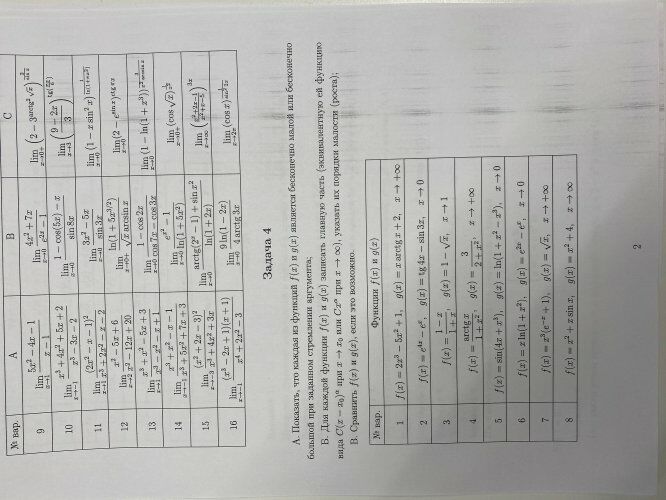 № вар. A B C
9 lim x→1 (5x² − 4x − 1)/(x − 1) lim x→0 (4x² + 7x)/(e^{2x} − 1) lim x→0+ (2 − 3^{arctg² √x})
10 lim x→−1 (x³ + 4x² + 5x + 2)/(x³ − 3x − 2) lim x→0 (1 − cos(5x) − x)/(sin 8x) lim x→3 ((9 + 2x)/3)
11 lim x→1 (2x² − x − 1)²/(x³ − 2x² − x − 2) lim x→0 (3x² − 5x)/(sin 3x) lim x→0 (1 − x sin² x)
12 lim x→2 (x² − 5x + 6)/(x² − 12x + 20) lim x→0+ ln(1 + 5x^{3/2})/(√x arcsin x) lim x→0 (2 − e^{sin x})^{ctg πx}
13 lim x→1 (x³ + x² − 5x + 3)/(x³ − x² − x + 1) lim x→0 (1 − cos 2x)/(cos 7x − cos 3x) lim x→0 (1 − ln(1 + x³))
14 lim x→−1 (x³ + x² − x − 1)/(x³ + 5x² + 7x + 3) lim x→0 (e^{x²} − 1)/ln(1 + 5x²) lim x→0+ (cos √x)
15 lim x→−3 (x² + 2x − 3)²/(x³ + 4x² + 3x) lim x→0 (arctg(2^x − 1) + sin x²)/ln(1 + 2x) lim x→∞
16 lim x→−1 (x³ − 2x + 1)(x + 1)/(x⁴ + 2x² − 3) lim x→0 9 ln(1 − 2x)/(4 arctg 3x) lim x→2π (cos x)
Задача 4
А. Показать, что каждая из функций f(x) и g(x) является бесконечно малой или бесконечно
большой при заданном стремлении аргумента;
В. Для каждой функции f(x) и g(x) записать главную часть (эквивалентную ей функцию
вида C(x − x₀)^α при x → x₀ или Cx^α при x → ∞), указать их порядки малости (роста);
В. Сравнить f(x) и g(x), если это возможно.
№ вар. Функции f(x) и g(x)
1 f(x) = 2x³ − 5x² + 1, g(x) = x arctg x + 2, x → +∞
2 f(x) = e^{4x} − e^x, g(x) = tg 4x − sin 3x, x → 0
3 f(x) = (1 − x)/(1 + x), g(x) = 1 − √x, x → 1
4 f(x) = arctg x/(1 + x²), g(x) = 3/(2 + x²), x → +∞
5 f(x) = sin(4x + x³), g(x) = ln(1 + x² − x³), x → 0
6 f(x) = x ln(1 + x²), g(x) = e^{2x} − e^x, x → 0
7 f(x) = x³(e^{−x} + 1), g(x) = √x, x → +∞
8 f(x) = x² + x sin x, g(x) = x² + 4, x → ∞
2